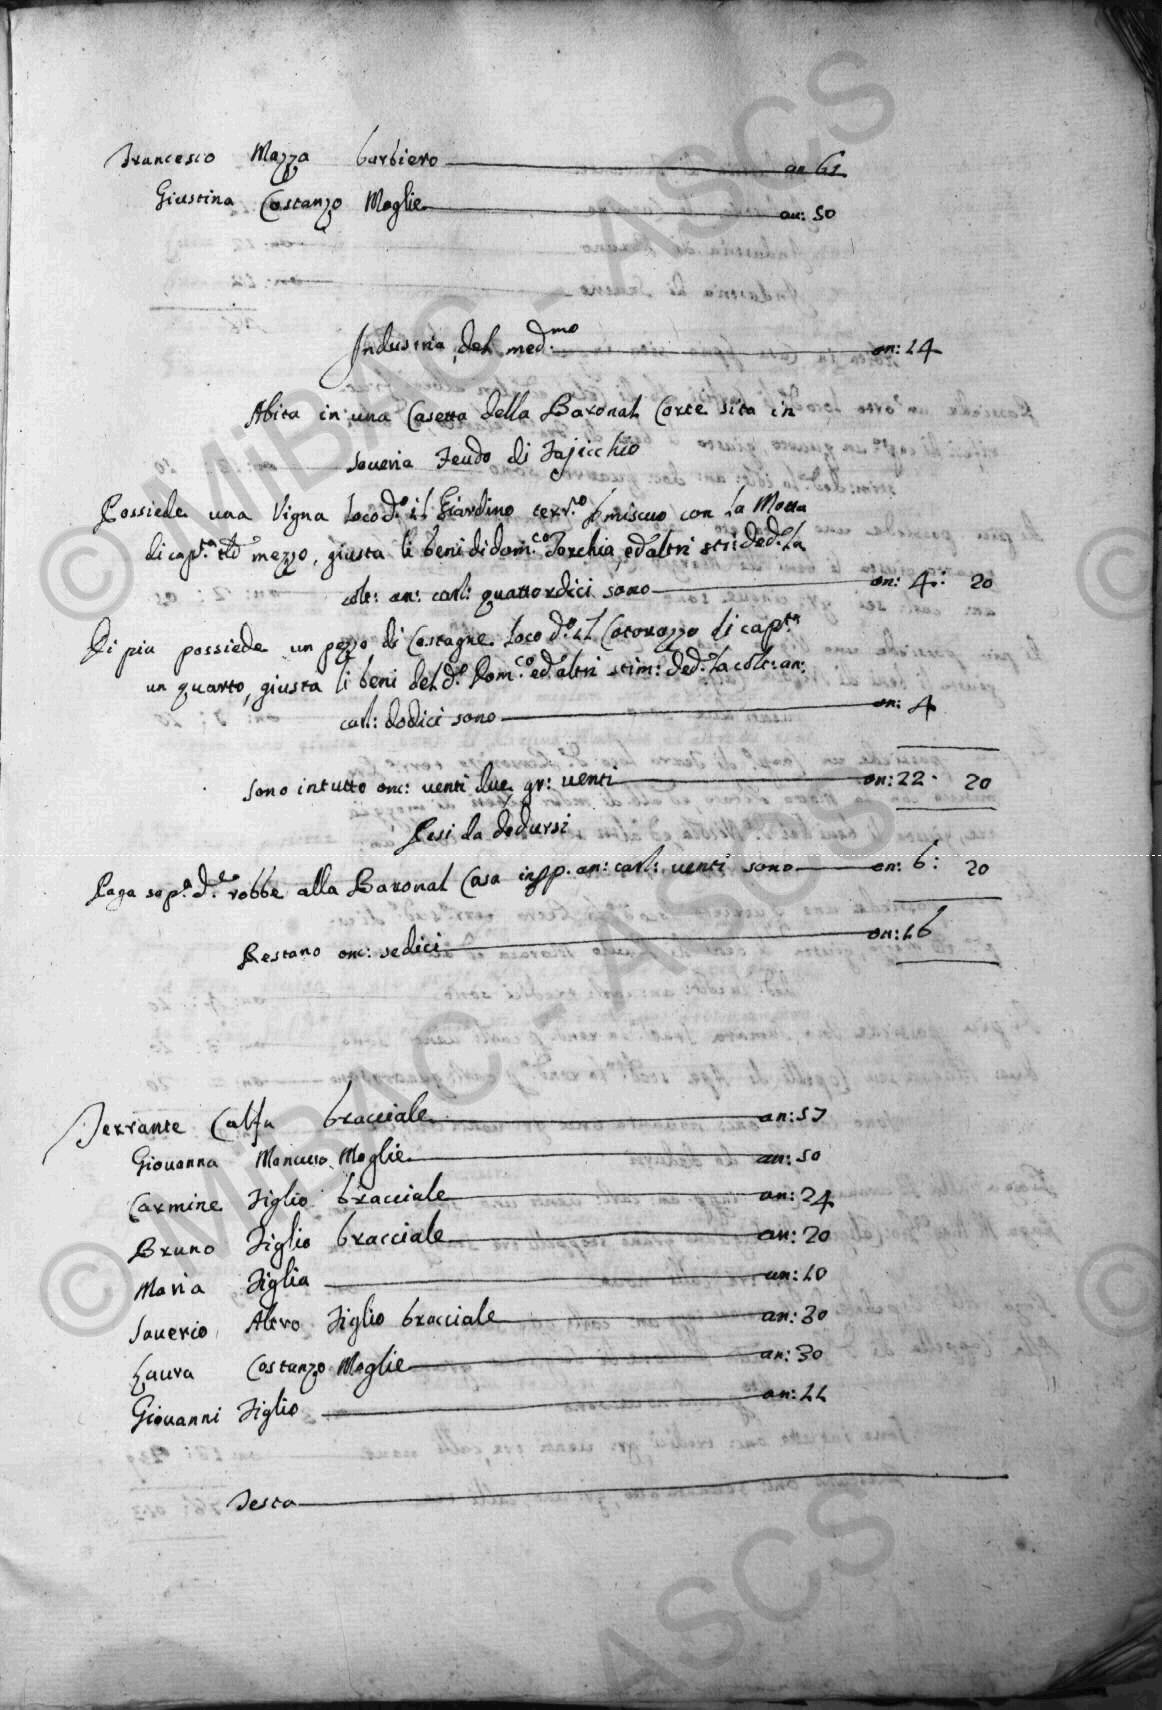 Francesco Mazza barbiero an: 61
Giustina Costanzo Moglie an: 50
Industria del med.mo on: 14
Abita in una Casetta della Baronal Corte sita in
Soveria Feudo di Fajicchio
Possiede una Vigna loco d.o il Giardino terr.o pmiscuo con la Motta
di cap.tà mezzo, giusta li beni di Dom.co Torchia, ed'altri sti: ded.a la
cole: an: carl: quattordici sono on: 4: 20
Di piu possiede un pezzo di Castagne loco d.o il Cotorazzo di cap.tà
un quarto, giusta li beni del d.o Dom.co ed'altri stim: ded.a la colt: an:
carl: dodici sono on: 4
Sono intutto onc: venti due, gr: venti on: 22. 20
Pesi da dedursi
Paga sop.a d.e robbe alla Baronal Casa insp. an: carl: venti sono on: 6: 20
Restano onc: sedici on: 16
Ferrante Calfa bracciale an: 57
Giovanna Mancuso Moglie an: 50
Carmine Figlio bracciale an: 24
Bruno Figlio bracciale an: 20
Maria Figlia an: 10
Saverio Altro Figlio bracciale an: 30
Laura Costanzo Moglie an: 30
Giovanni Figlio an: 11
Testa
© MiBAC - ASCS
© MiBAC - ASCS
ASCS